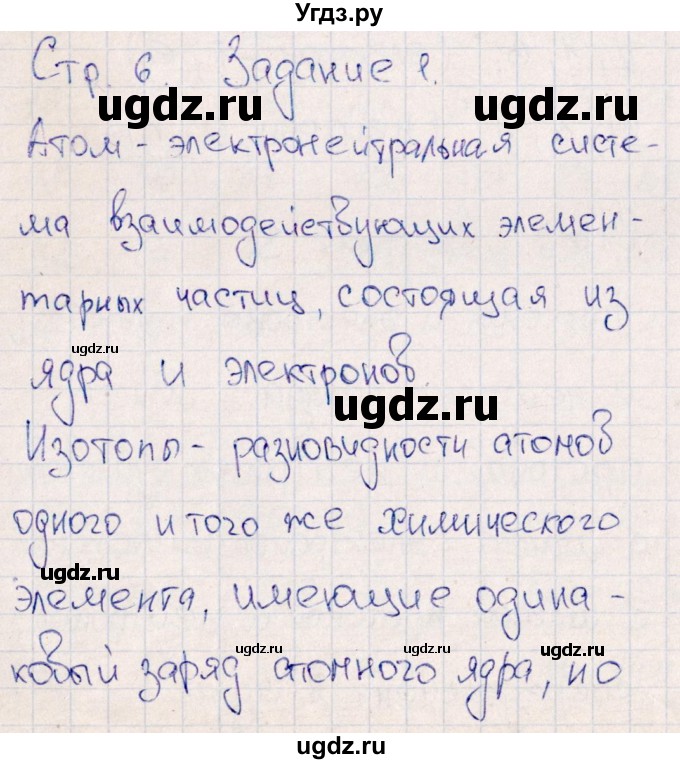 Угдз.ру
Стр. 6. Задание 1.
ugdz.ru ugdz.ru
Атом - электронейтральная систе-
ма взаимодействующих элемен-
тарных частиц, состоящая из
ugdz.ru
ядра и электронов.
ugdz.ru
Изотопы - разновидности атомов
одного и того же химического
ugdz.ru
элемента, имеющие одина-
ugdz.ru ugdz.ru
ковый заряд атомного ядра, но
ugdz.ru